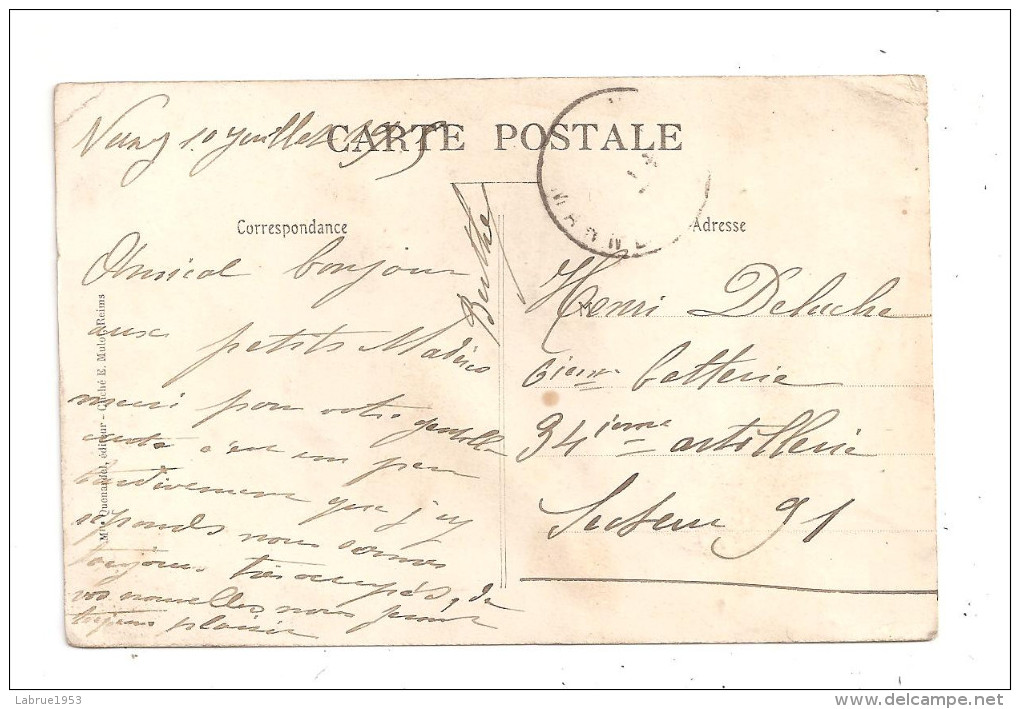 10 Juillet 1915
CARTE POSTALE
MARNE
Correspondance
Adresse
Amical bonjour
aux petits
merci pour votre gentille
carte c'est un peu
tardivement que j'y
réponds nous sommes
toujours très occupés, de
vos nouvelles nous feront
toujours plaisir
Berthe
Henri Deluche
6ieme batterie
34ieme artillerie
Secteur 91
Quenardel, éditeur - Cliché E. Mulot Reims
Labrue1953
www.delcampe.net